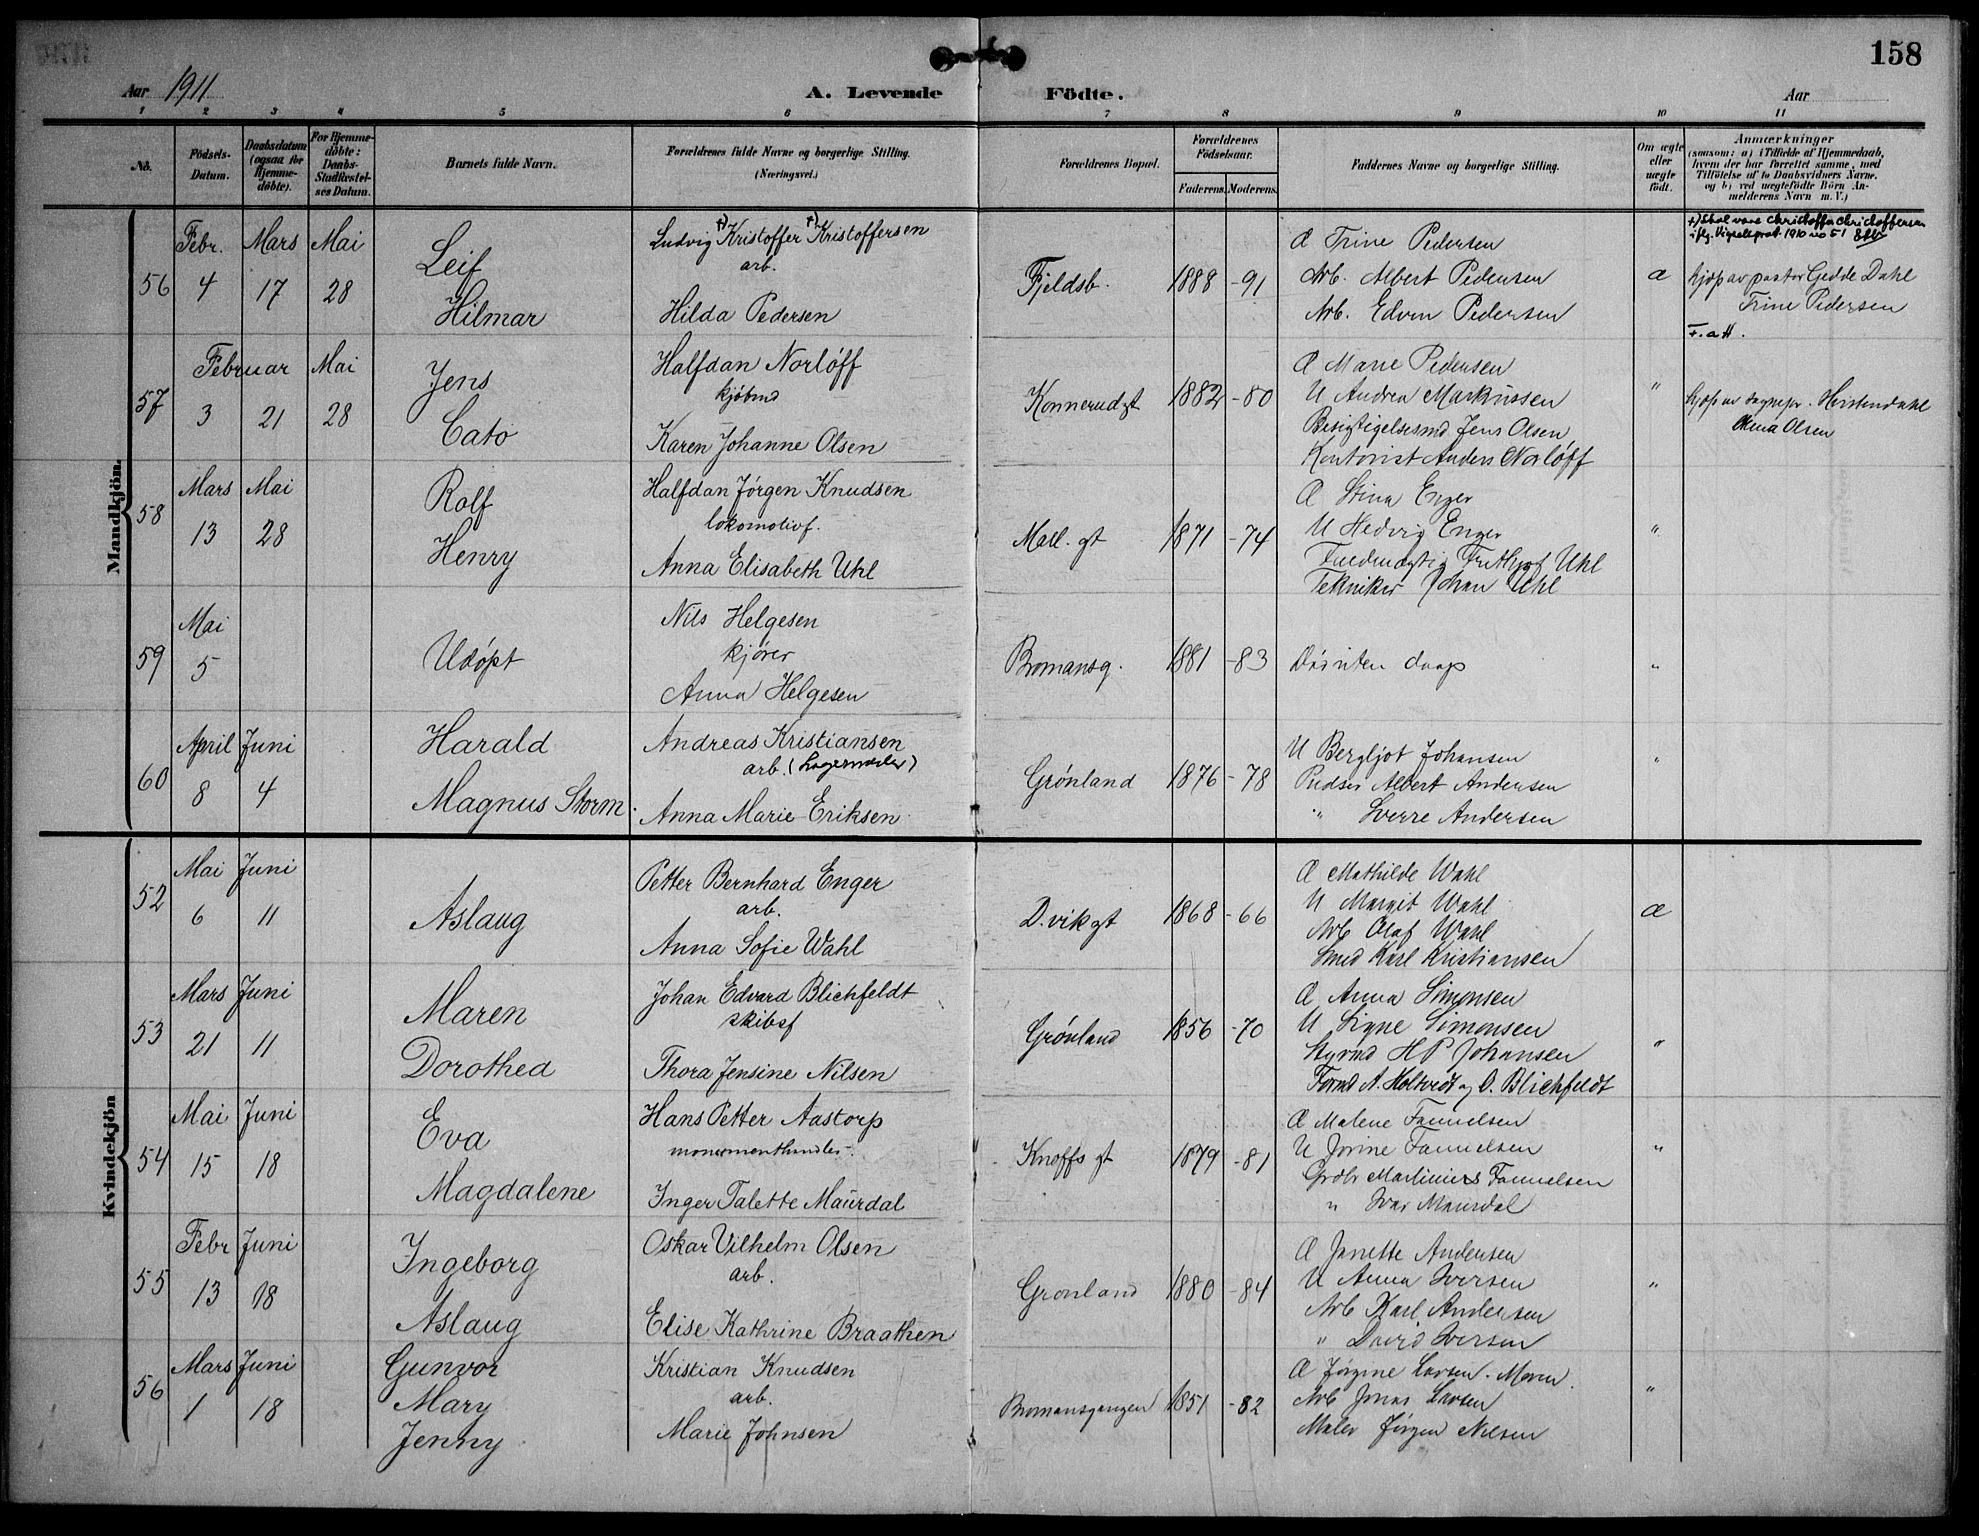 158
Aar 1911
A. Levende Födte.
Aar
1 2 3 4 5 6 7 8 9 10 11
No.
Födsels-
Datum.
Daabsdatum
(ogsaa for
Hjemme-
döbte).
For Hjemme-
döbte:
Daabs-
Stadfæstel-
ses Datum.
Barnets fulde Navn.
Forældrenes fulde Navne og borgerlige Stilling.
(Næringsvei.)
Forældrenes Bopæl.
Forældrenes
Födselsaar.
Faderens. Moderens.
Faddernes Navne og borgerlige Stilling.
Om ægte
eller
uægte
født.
Anmærkninger
(saasom: a) i Tilfælde af Hjemmedaab,
hvem der har forrettet samme, med
Tilföielse af to Daabsvidners Navne,
og b) ved uægtefödte Börn An-
melderens Navn m. V.)
Mandkjön.
56
Febr. 4
Mars 17
Mai 28
Leif
Hilmar
Ludvig +) Kristoffer +) Kristoffersen
arb.
Hilda Pedersen
Fjeldsb.
1888 - 91
Æ Trine Pedersen
Arb. Albert Pedersen
Arb. Edvin Pedersen
æ
+) Skal være Christoffer Christoffersen
iflg. Vigselsprot. 1910 no 51
hjdøp av pastor Gedde Dahl
Trine Pedersen
F. a H.
57
Februar
3 21
Mai 28
Jens
Cato
Halfdan Norløff
kjøbmd
Karen Johanne Olsen
Konnerudgt
1882 - 80
Æ Marie Pedersen
U Andrea Markussen
Besigtigelsesmd Jens Olsen
Kontorist Anders Norløff
"
hjdøp av sognepr. Heistendahl
Olsen
58
Mars 13
Mai 28
Rolf
Henry
Halfdan Jørgen Knudsen
lokomotivf.
Anna Elisabeth Uhl
Møll. gt
1871 - 74
Æ Stina Enger
U Hedvig Enger
Fuldmægtig Fritljof Uhl
Tekniker Johan Uhl
"
59
Mai
5
Udøpt
Nils Helgesen
kjører
Anna Helgesen
Bromansg.
1881 - 83
Død uten daap
"
60
April 8
Juni 4
Harald
Magnus Storm
Andreas Kristiansen
arb. (Lagermøller)
Anna Marie Eriksen
Grønland
1876 - 78
U Bergljot Johansen
Pudser Albert Andersen
" Sverre Andersen
"
Kvindekjön
52
Mai 6
Juni 11
Aslaug
Petter Bernhard Enger
arb.
Anna Sofie Wahl
D.vikgt
1868 - 66
Æ Mathilde Wahl
U Margit Wahl
Arb Olaf Wahl
Smed Karl Kristiansen
æ
53
Mars 21
Juni 11
Maren
Dorothea
Johan Edvard Blichfeldt
skibsf
Thora Jensine Nilsen
Grønland
1856 - 70
Æ Anna Simonsen
U Signe Simonsen
Styrmd H P Johansen
Formd A. Holtvedt og O. Blichfeldt
"
54
Mai 15
Juni 18
Eva
Magdalene
Hans Petter Aastorp
monumenthandler
Inger Talette Maurdal
Knoffs gt
1879 - 81
Æ Malene Fannelsen
U Jorine Fannelsen
Grdbr Martinius Fannelsen
" Ivar Maurdal
"
55
Febr 13
Juni 18
Ingeborg
Aslaug
Oskar Vilhelm Olsen
arb.
Elise Kathrine Braathen
Grønland
1880 - 84
Æ Janette Andersen
U Anna Iversen
Arb Karl Andersen
" David Iversen
"
56
Mars 1
Juni 18
Gunvor
Mary
Jenny
Kristian Knudsen
arb.
Marie Johnsen
Bromansgangen
1851 - 82
Æ Jørgine Larsen. Moren.
Arb Jonas Larsen
Maler Jørgen Nilsen
"